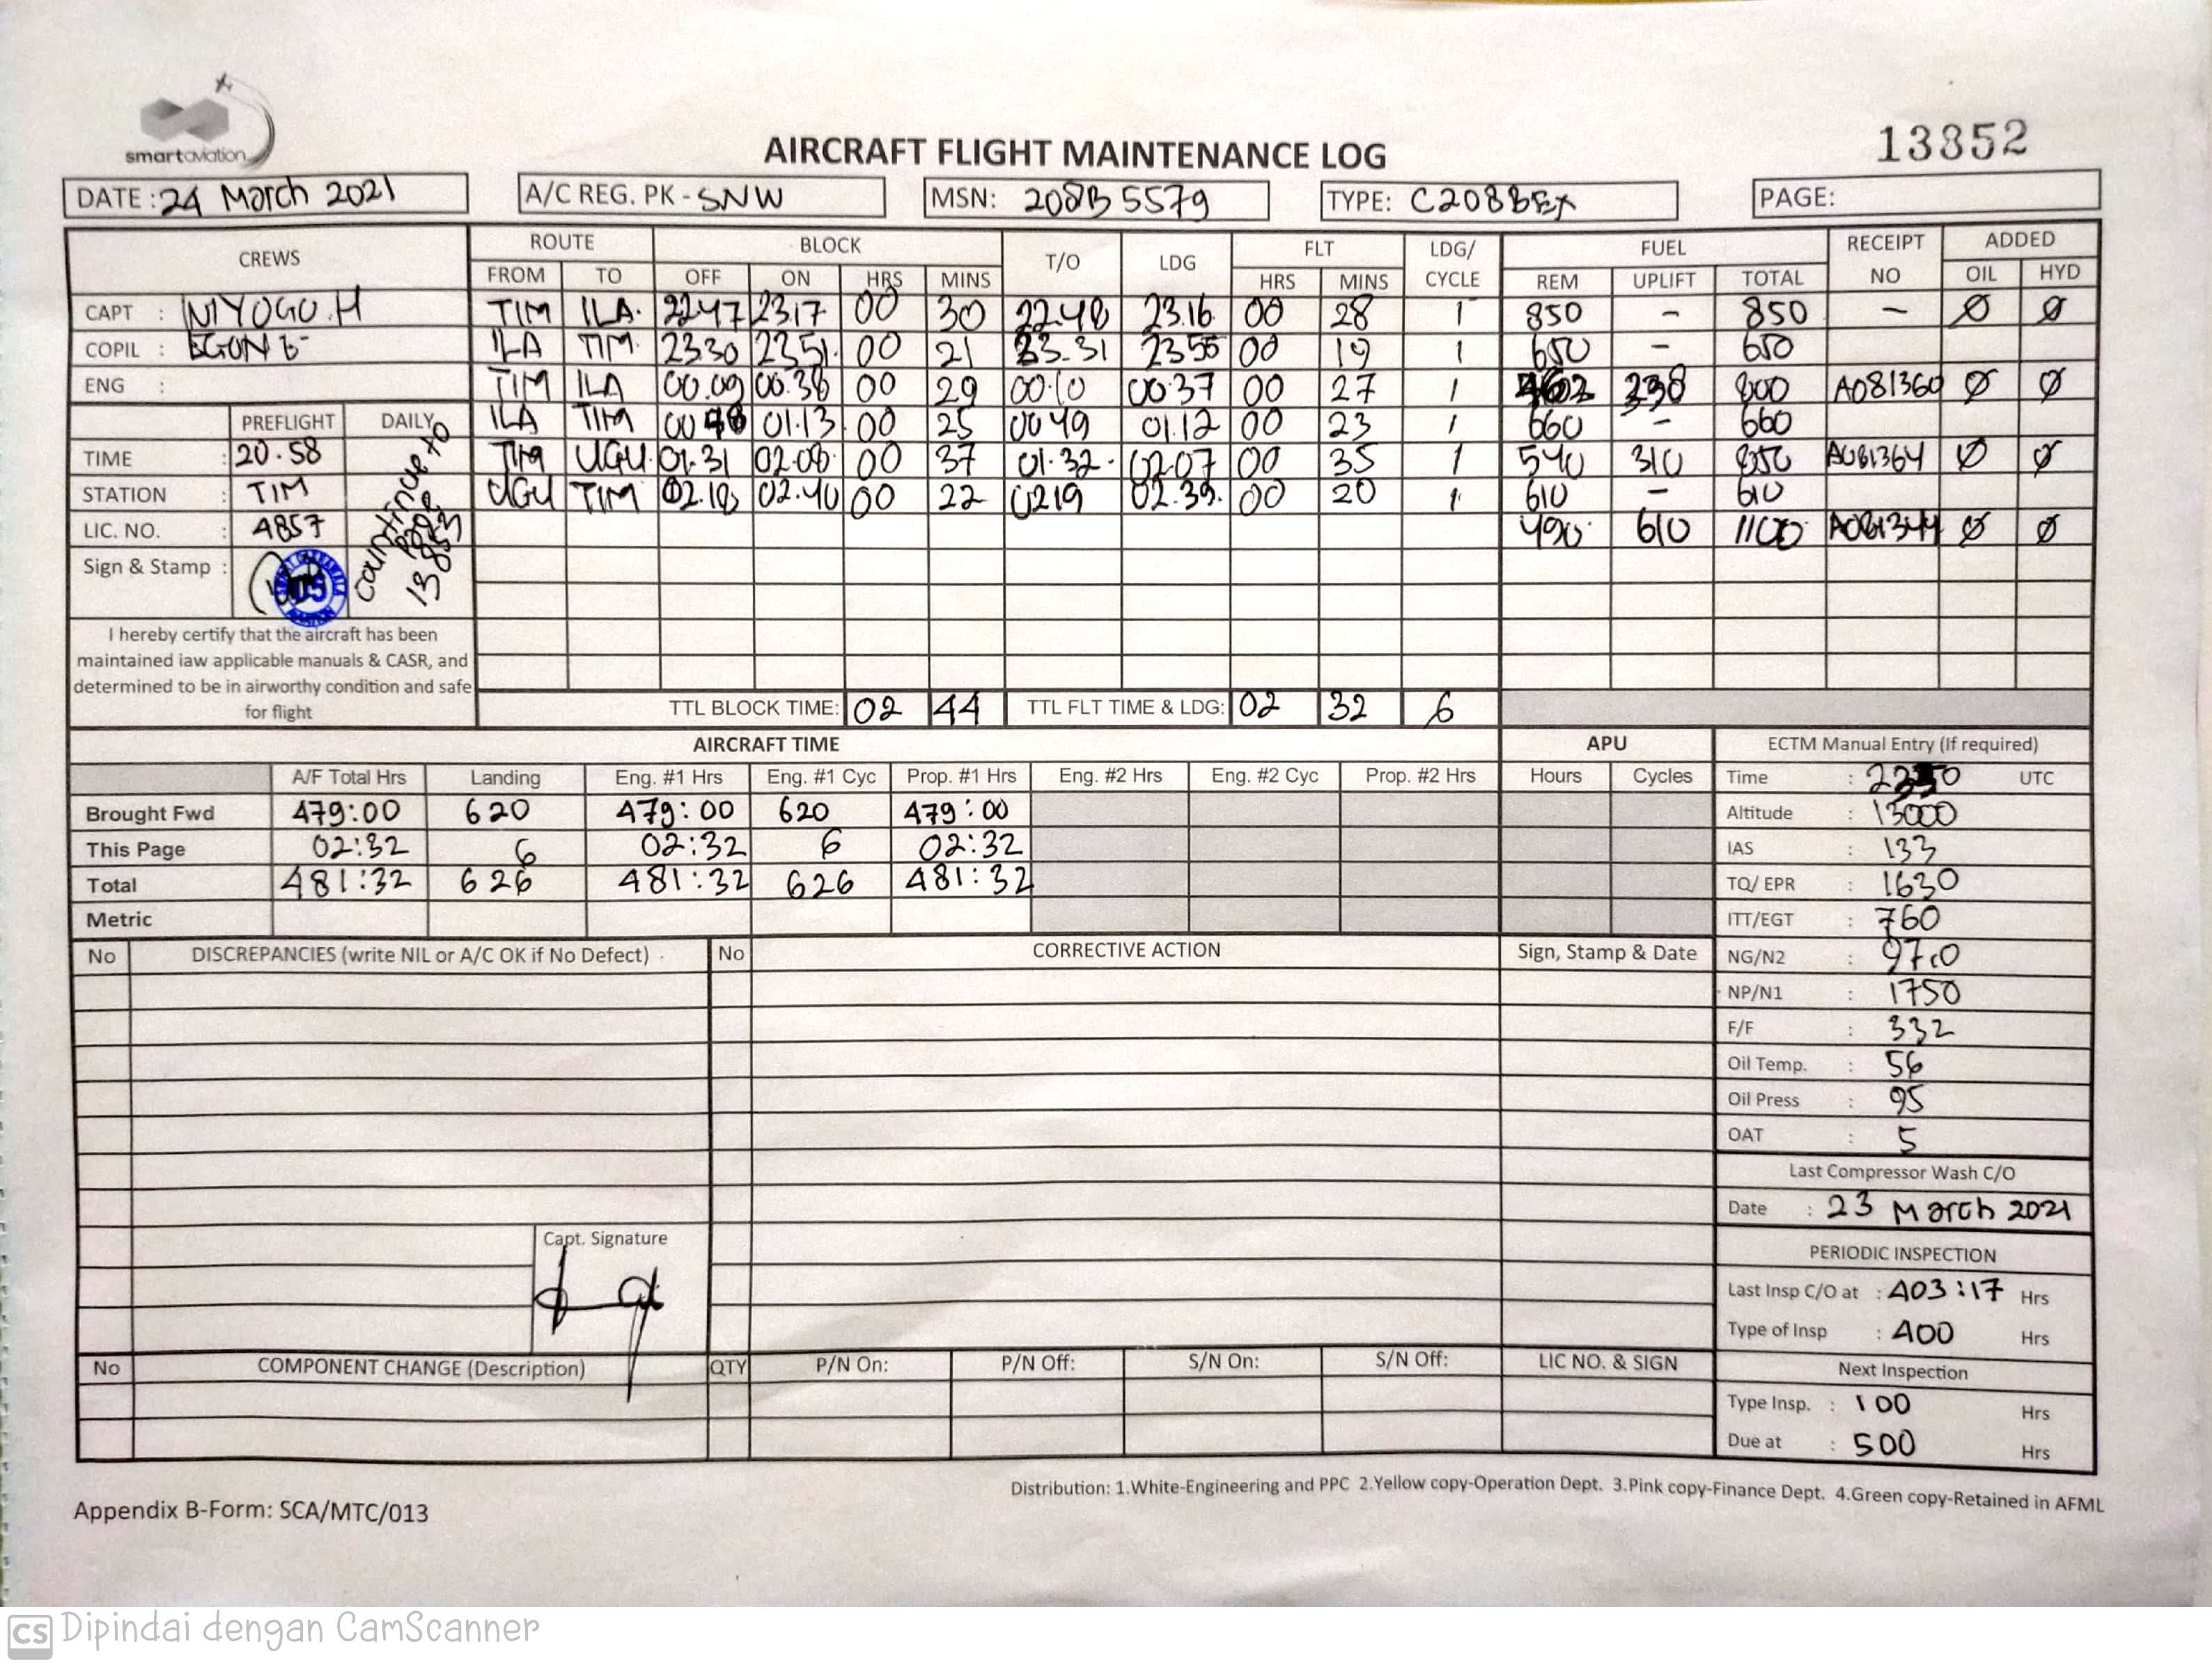 smartaviation
AIRCRAFT FLIGHT MAINTENANCE LOG
13852
DATE : 24 March 2021
A/C REG. PK - SNW
MSN: 208B 5579
TYPE: C208BEX
PAGE:
CREWS ROUTE BLOCK T/O LDG FLT LDG/CYCLE FUEL RECEIPT NO ADDED
FROM TO OFF ON HRS MINS HRS MINS REM UPLIFT TOTAL OIL HYD
CAPT : NIYOGO.H TIM ILA. 2247 23.17 00 30 22.48 23.16 00 28 1 850 - 850 - Ø Ø
COPIL : EGON ILA TIM. 2330 2351. 00 21 23.31 00 19 1 650 - 650
ENG : TIM ILA 00.09 00.38 00 29 00.10 00.37 00 27 1 238 800 A081360 Ø Ø
PREFLIGHT DAILY ILA TIM 00 48 01.13 00 25 0049 01.12 00 23 1 660 - 660
TIME : 20.58 TIM UGU. 01.31 02.08. 00 37 01.32 02.07 00 35 1 540 310 850 A081364 Ø Ø
STATION : TIM UGU TIM 02.18 02.40 00 22 0219 02.39. 00 20 1 610 - 610
LIC. NO. : 4857 490 610 1100 A081344 Ø Ø
Sign & Stamp :
countinue to
page
13853
I hereby certify that the aircraft has been
maintained iaw applicable manuals & CASR, and
determined to be in airworthy condition and safe
for flight
TTL BLOCK TIME: 02 44 TTL FLT TIME & LDG: 02 32 6
AIRCRAFT TIME APU
A/F Total Hrs Landing Eng. #1 Hrs Eng. #1 Cyc Prop. #1 Hrs Eng. #2 Hrs Eng. #2 Cyc Prop. #2 Hrs Hours Cycles
Brought Fwd 479:00 620 479:00 620 479:00
This Page 02:32 6 02:32 6 02:32
Total 481:32 626 481:32 626 481:32
Metric
ECTM Manual Entry (If required)
Time : UTC
Altitude : 13000
IAS : 133
TQ/ EPR : 1630
ITT/EGT : 760
NG/N2 : 97.0
NP/N1 : 1750
F/F : 332
Oil Temp. : 56
Oil Press : 95
OAT : 5
Last Compressor Wash C/O
Date : 23 March 2021
PERIODIC INSPECTION
Last Insp C/O at : 403:17 Hrs
Type of Insp : 400 Hrs
Next Inspection
Type Insp. : 100 Hrs
Due at : 500 Hrs
No DISCREPANCIES (write NIL or A/C OK if No Defect) No CORRECTIVE ACTION Sign, Stamp & Date
Capt. Signature
No COMPONENT CHANGE (Description) QTY P/N On: P/N Off: S/N On: S/N Off: LIC NO. & SIGN
Distribution: 1.White-Engineering and PPC 2.Yellow copy-Operation Dept. 3.Pink copy-Finance Dept. 4.Green copy-Retained in AFML
Appendix B-Form: SCA/MTC/013
CS Dipindai dengan CamScanner